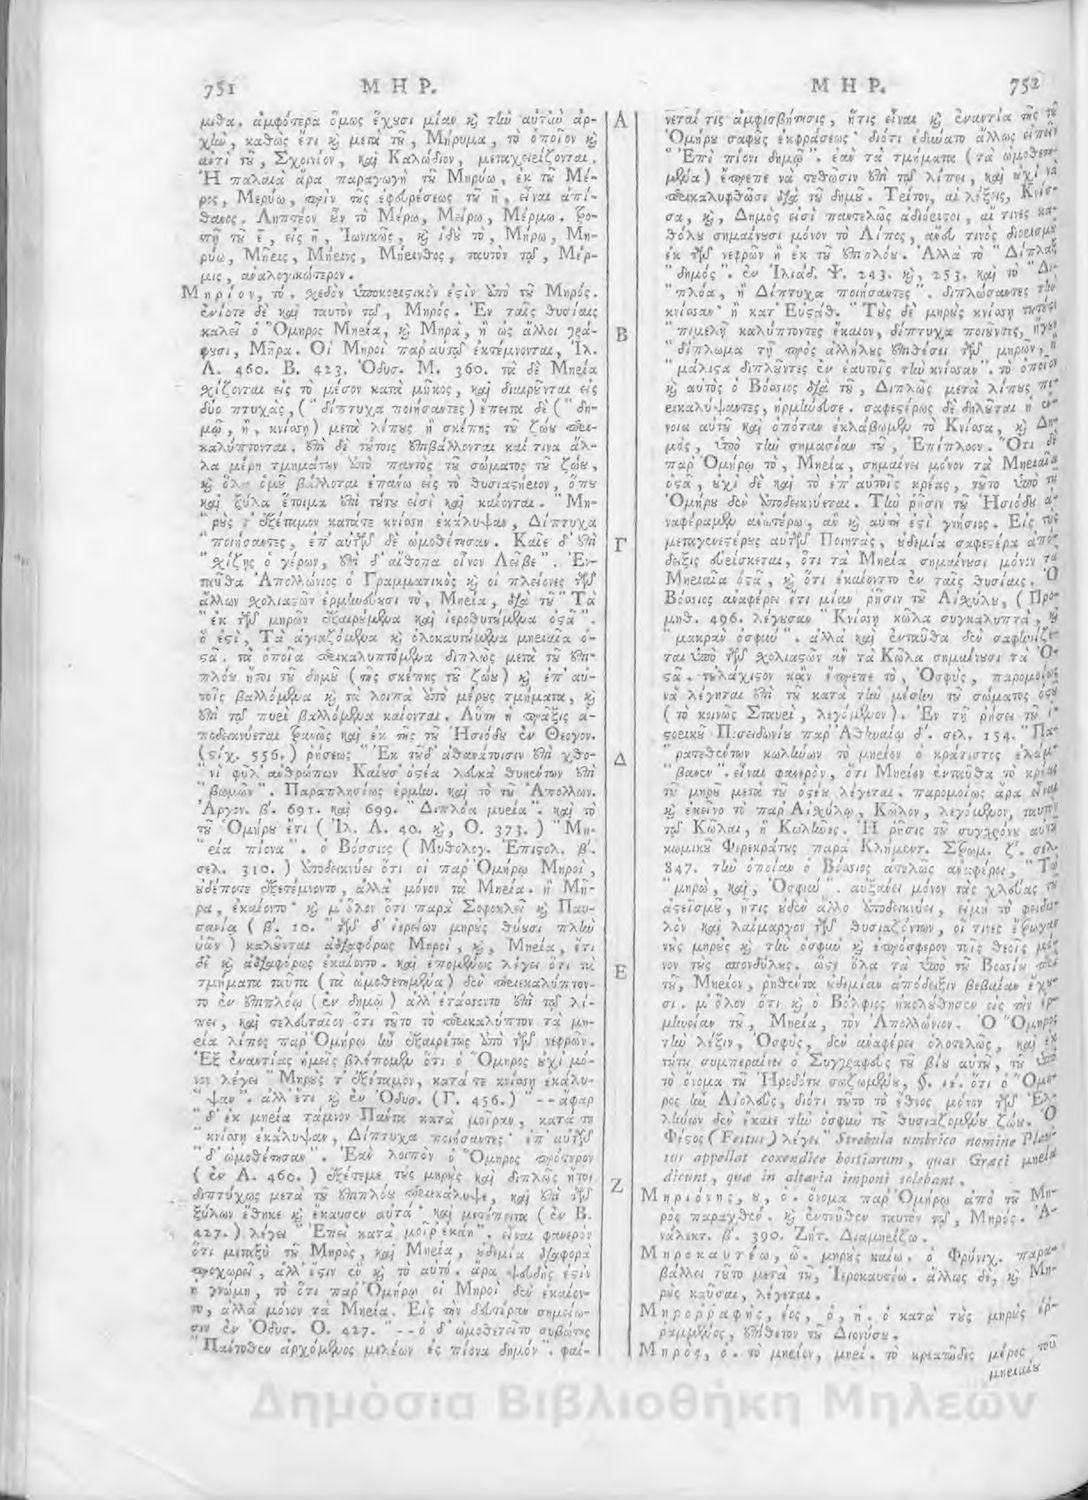 751 ΜΗΡ.
μεθα. ἀμφότερα ὅμως ἔχουσι μίαν καὶ τὴν αὐτὴν ἀρ-
χὴν, καθὼς ἔτι καὶ μετὰ τοῦ, Μήρυμα, τὸ ὁποῖον καὶ
ἀντὶ τοῦ, Σχοινίον, καὶ Καλώδιον, μεταχειρίζονται.
Ἡ παλαιὰ ἄρα παραγωγὴ τοῦ Μηρύω, ἐκ τοῦ Μέ-
ρος, Μερύω, πρὶν τῆς ἐφευρέσεως τοῦ η, εἶναι ἀπί-
θανος. Ληπτέον οὖν τὸ Μέρω, Μείρω, Μέρμω. τρο-
πῇ τοῦ ε, εἰς η, Ἰωνικῶς, καὶ ἰδοὺ τὸ, Μήρω, Μη-
ρύω, Μήεις, Μήεινς, Μήεινθος, ταυτὸν τῷ, Μέρ-
μις, ἀναλογικώτερον.
Μηρίον, τό. σχεδὸν ὑποκοριστικόν ἐστιν ἀπὸ τοῦ Μηρός.
ἐνίοτε δὲ καὶ ταυτὸν τῷ, Μηρός. Ἐν ταῖς θυσίαις
καλεῖ ὁ Ὅμηρος Μηρία, καὶ Μηρά, ἢ ὡς ἄλλοι γρά-
φουσι, Μῆρα. Οἱ Μηροὶ παρ' αὐτῷ ἐκτέμνονται, Ἰλ.
Α. 460. Β. 423. Ὀδυσ. Μ. 360. τὰ δὲ Μηρία
σχίζονται εἰς τὸ μέσον κατὰ μῆκος, καὶ διαιροῦνται εἰς
δύο πτυχάς, ("δίπτυχα ποιήσαντες) ἔπειτα δὲ ("δη-
μῷ, ἢ, κνίσῃ) μετὰ λίπους ἢ σκέπης τοῦ ζώου περι-
καλύπτονται. ἐπὶ δὲ τούτοις ἐπιβάλλονται καί τινα ἄλ-
λα μέρη τμημάτων ἀπὸ παντὸς τοῦ σώματος τοῦ ζώου,
καὶ ὅλα ὁμοῦ βάλλονται ἐπάνω εἰς τὸ θυσιαστήριον, ὅπου
καὶ ξύλα ἕτοιμα ἐπὶ τούτου εἰσὶ καὶ καίονται. "Μη-
"ρούς τ' ἐξέταμον κατά τε κνίσῃ ἐκάλυψαν, Δίπτυχα
"ποιήσαντες, ἐπ' αὐτῶν δ' ὠμοθέτησαν. Καῖε δ' ἐπὶ
"σχίζῃς ὁ γέρων, ἐπὶ δ' αἴθοπα οἶνον Λεῖβε". Ἐν-
ταῦθα Ἀπολλώνιος ὁ Γραμματικὸς καὶ οἱ πλείονες τῶν
ἄλλων σχολιαστῶν ἑρμηνεύουσι τὸ, Μηρία, διὰ τοῦ "Τὰ
"ἐκ τῶν μηρῶν ἐξαιρούμενα καὶ ἱεροθυτούμενα ὀστᾶ".
ὅ ἐστι, Τὰ ἁγιαζόμενα καὶ ὁλοκαυτούμενα μηριαῖα ὀ-
στᾶ. τὰ ὁποῖα περικαλυπτόμενα διπλῶς μετὰ τοῦ ἐπι-
πλόου ἤτοι τοῦ δημοῦ (τῆς σκέπης τοῦ ζώου) καὶ ἐπ' αὐ-
τοῖς βαλλόμενα καὶ τὰ λοιπὰ ἀπὸ μέρους τμήματα, καὶ
ἐπὶ τῷ πυρὶ βαλλόμενα καίονται. Αὕτη ἡ πρᾶξις ἀ-
ποδεικνύεται τρανῶς καὶ ἐκ τῆς τοῦ Ἡσιόδου ἐν Θεογον.
(στίχ. 556.) ῥήσεως "Ἐκ τοῦδ' ἀθανάτοισιν ἐπὶ χθο-
"νὶ φῦλ' ἀνθρώπων Καίουσ' ὀστέα λευκὰ θυηέντων ἐπὶ
"βωμῶν". Παραπλησίως ἑρμην. καὶ τὸ τοῦ Ἀπολλων.
Ἀργον. β'. 691. καὶ 699. "Διπλόα μηρία". καὶ τὸ
τοῦ Ὁμήρου ἔτι (Ἰλ. Α. 40. καὶ, Ο. 373.) "Μη-
"ρία πίονα". ὁ Βόσσιος (Μυθολογ. Ἐπιστολ. β'.
σελ. 310.) ἀποδεικνύει ὅτι οἱ παρ' Ὁμήρῳ Μηροί,
οὐδέποτε ἐξετέμνοντο, ἀλλὰ μόνον τὰ Μηρία. ἢ Μῆ-
ρα, ἐκαίοντο· καὶ μ' ὅλον ὅτι παρὰ Σοφοκλεῖ καὶ Παυ-
σανίᾳ (β'. 10. "τῶν δ' ἱερείων μηροὺς θύουσι πλὴν
ὑῶν) καλοῦνται ἀδιαφόρως Μηροί, καὶ, Μηρία, ἔτι
δὲ καὶ ἀδιαφόρως ἐκαίοντο. καὶ ἑπομένως λέγει ὅτι τὰ
τμήματα ταῦτα (τὰ ὠμοθετημένα) δὲν περιεκαλύπτον-
το ἐν ἐπιπλόῳ (ἐν δημῷ) ἀλλ' ἐτάσσοντο ἐπὶ τῷ λί-
πει, καὶ τελευταῖον ὅτι τοῦτο τὸ περικαλύπτον τὰ μη-
ρία λίπος παρ' Ὁμήρῳ ἦν ἐξαιρέτως ἀπὸ τῶν νεφρῶν.
Ἐξ ἐναντίας ἡμεῖς βλέπομεν ὅτι ὁ Ὅμηρος οὐχὶ μό-
νον λέγει "Μηρούς τ' ἐξέταμον, κατά τε κνίσῃ ἐκάλυ-
"ψαν". ἀλλ' ἔτι καὶ ἐν Ὀδυσ. (Γ. 456.) "-- ἄφαρ
"δ' ἐκ μηρία τάμνον Πάντα κατὰ μοῖραν, κατά τε
"κνίσῃ ἐκάλυψαν, Δίπτυχα ποιήσαντες· ἐπ' αὐτῶν
"δ' ὠμοθέτησαν". Ἐὰν λοιπὸν ὁ Ὅμηρος πρότερον
(ἐν Α. 460.) ἐξέτεμε τοὺς μηροὺς καὶ διπλῶς ἤτοι
διπτύχως μετὰ τοῦ ἐπιπλόου περιεκάλυψε, καὶ ἐπὶ τῶν
ξύλων ἔθηκε καὶ ἔκαυσεν αὐτά· καὶ μετέπειτα (ἐν Β.
427.) λέγει "Ἐπεὶ κατὰ μοῖρ' ἐκάη". εἶναι φανερὸν
ὅτι μεταξὺ τοῦ Μηρός, καὶ Μηρία, οὐδεμία διαφορὰ
προχωρεῖ, ἀλλ' ἔστιν ἓν καὶ τὸ αὐτό. ἄρα ψευδής ἐστιν
ἡ γνώμη, τὸ ὅτι παρ' Ὁμήρῳ οἱ Μηροὶ δὲν ἐκαίον-
το, ἀλλὰ μόνον τὰ Μηρία. Εἰς τὴν δευτέραν σημείω-
σιν ἐν Ὀδυσ. Ο. 427. "-- ὁ δ' ὠμοθετεῖτο συβώτης
"Πάντοθεν ἀρχόμενος μελέων ἐς πίονα δημόν". φαί-
Α
Β
Γ
Δ
Ε
Ζ
ΜΗΡ. 752
νεταί τις ἀμφισβήτησις, ἥτις εἶναι καὶ ἐναντία τῆς τοῦ
Ὁμήρου σαφοῦς ἐκφράσεως· διότι ἐδύνατο ἄλλως εἰπεῖν
"Ἐπὶ πίονι δημῷ". ἐὰν τὰ τμήματα (τὰ ὠμοθετη-
μένα) ἔπρεπε νὰ τεθῶσιν ἐπὶ τῷ λίπει, καὶ οὐχὶ νὰ
περικαλυφθῶσι διὰ τοῦ δημοῦ. Τρίτον, αἱ λέξεις, Κνίσ-
σα, καὶ, Δημός εἰσὶ παντελῶς ἀδιόριστοι, αἵ τινες κα-
θόλου σημαίνουσι μόνον τὸ Λίπος, ἄνευ τινὸς διορισμοῦ
ἐκ τῶν νεφρῶν ἢ ἐκ τοῦ ἐπιπλόου. Ἀλλὰ τὸ "Δίπλαξ
"δημός". ἐν Ἰλιάδ. Ψ. 243. καὶ, 253. καὶ τὸ "Δι-
"πλόα, ἢ Δίπτυχα ποιήσαντες". διπλώσαντες τὴν
κνίσαν· ἢ κατ' Εὐσταθ. "Τοὺς δὲ μηροὺς κνίσῃ τουτέστι
"πιμελῇ καλύπτοντες ἔκαιον, δίπτυχα ποιοῦντες, ἤγουν
"δίπλωμα τῇ πρὸς ἀλλήλους ἐπιθέσει τῶν μηρῶν, ἢ
"μάλιστα διπλοῦντες ἐν ἑαυτοῖς τὴν κνίσαν". τὸ ὁποῖον
καὶ αὐτὸς ὁ Βόσσιος διὰ τοῦ, Διπλῶς μετὰ λίπους πε-
ρικαλύψαντες, ἡρμήνευσε. σαφεστέρως δὲ δηλοῦται ἡ ἔν-
νοια αὕτη καὶ ὁπόταν ἐκλάβωμεν τὸ Κνίσσα, καὶ Δη-
μός, ὑπὸ τὴν σημασίαν τοῦ, Ἐπίπλοον. Ὅτι δὲ
παρ' Ὁμήρῳ τὸ, Μηρία, σημαίνει μόνον τὰ Μηριαῖα
ὀστᾶ, οὐχὶ δὲ καὶ τὸ ἐπ' αὐτοῖς κρέας, τοῦτο ὑπὸ τοῦ
Ὁμήρου δὲν ἀποδεικνύεται. Τὴν ῥῆσιν τοῦ Ἡσιόδου ἀ-
ναφέραμεν ἀνωτέρω, ἂν καὶ αὕτη ἐστὶ γνήσιος. Εἰς τοὺς
μεταγενεστέρους αὐτῶν Ποιητάς, οὐδεμία σαφεστέρα ἀπό-
δειξις εὑρίσκεται, ὅτι τὰ Μηρία σημαίνουσι μόνον τὰ
Μηριαῖα ὀστᾶ, καὶ ὅτι ἐκαίοντο ἐν ταῖς θυσίαις. Ὁ
Βόσσιος ἀναφέρει ἔτι μίαν ῥῆσιν τοῦ Αἰσχύλου, (Προ-
μηθ. 496. λέγουσαν "Κνίσῃ κῶλα συγκαλυπτά, καὶ
"μακρὰν ὀσφῦν". ἀλλὰ καὶ ἐνταῦθα δὲν σαφηνίζε-
ται ὑπὸ τῶν σχολιαστῶν ἂν τὰ Κῶλα σημαίνουσι τὰ Ὀ-
στᾶ. τουλάχιστον κᾂν ἔπρεπε τὸ, Ὀσφύς, παρομοίως
νὰ λέγηται ἐπὶ τοῦ κατὰ τὴν μέσην τοῦ σώματος ὀστοῦ
(τὸ κοινῶς Σταυρί, λεγόμενον). Ἐν τῇ ῥήσει τοῦ ἱ-
στορικοῦ Ποσειδωνίου παρ' Ἀθηναίῳ δ'. σελ. 154. "Πα-
"ρατεθέντων κωλήνων τὸ μηρίον ὁ κράτιστος ἐλάμ-
"βανεν". εἶναι φανερόν, ὅτι Μηρίον ἐνταῦθα τὸ κρέας
τοῦ μηροῦ μετὰ τοῦ ὀστέου λέγεται. παρομοίως ἄρα εἶναι
καὶ ἐκεῖνο τὸ παρ' Αἰσχύλῳ, Κῶλον, λεγόμενον, ταυτὸν
τῷ Κῶλαι, ἢ Κωλῆνες. Ἡ ῥῆσις τοῦ συγχρόνου αὐτῷ
κωμικοῦ Φερεκράτους παρὰ Κλήμεντ. Στρωμ. ζ'. σελ.
847. τὴν ὁποίαν ὁ Βόσσιος ἀτελῶς ἀναφέρει, "Τὼ
"μηρώ, καὶ, Ὀσφῦν". αὐξάνει μόνον τὰς χλεύας τοῦ
ἀστεϊσμοῦ, ἥτις οὐδὲν ἄλλο ἀποδεικνύει, εἰμὴ τὸ φειδω-
λὸν καὶ λαίμαργον τῶν θυσιαζόντων, οἵ τινες ἔτρωγαν
τοὺς μηροὺς καὶ τὴν ὀσφῦν καὶ ἐπρόσφερον τοῖς θεοῖς μό-
νον τοὺς σπονδύλους. ὥστε ὅλα τὰ ὑπὸ τοῦ Βοσσίου περὶ
τοῦ, Μηρίον, ῥηθέντα οὐδεμίαν ἀπόδειξιν βεβαίαν ἔχου-
σι. μ' ὅλον ὅτι καὶ ὁ Βόλφιος ἠκολούθησεν εἰς τὴν ἑρ-
μηνείαν τοῦ, Μηρία, τὸν Ἀπολλώνιον. Ὁ Ὅμηρος
τὴν λέξιν, Ὀσφύς, δὲν ἀναφέρει ὁλοτελῶς, καὶ ἐκ
τούτου συμπεραίνει ὁ Συγγραφεὺς τοῦ βίου αὐτοῦ, τοῦ ὑπὸ
τὸ ὄνομα τοῦ Ἡροδότου σωζομένου, §. ιε'. ὅτι ὁ Ὅμη-
ρος ἦν Αἰολεύς, διότι τοῦτο τὸ ἔθνος μόνον τῶν Ἑλ-
λήνων δὲν ἔκαιε τὴν ὀσφῦν τοῦ θυσιαζομένου ζώου. Ὁ
Φέστος (Festus) λέγει· Strebula umbrico nomine Plau-
tus appellat coxendice hostiarum, quas Graeci μηρία
dicunt, quae in altaria imponi solebant.
Μηριόνης, ου, ὁ. ὄνομα παρ' Ὁμήρῳ ἀπὸ τοῦ Μη-
ρὸς παραχθέν. καὶ ἐντεῦθεν ταυτὸν τῷ, Μηρός. Ἀ-
νάλεκτ. β'. 390. Ζήτ. Διαμηρίζω.
Μηροκαυτέω, ῶ. μηροὺς καίω. ὁ Φρύνιχ. παρα-
βάλλει τοῦτο μετὰ τοῦ, Ἱεροκαυτέω. ἄλλως δέ, καὶ Μη-
ροὺς καῦσαι, λέγεται.
Μηροῤῥαφής, έος, ὁ, ἡ. ὁ κατὰ τοὺς μηροὺς ἐρ-
ραμμένος, ἐπίθετον τοῦ Διονύσου.
Μηρός, ὁ. τὸ μηρίον, μηρί. τὸ κρεατῶδες μέρος τοῦ
μηριαίου
Δημόσια Βιβλιοθήκη Μηλεών